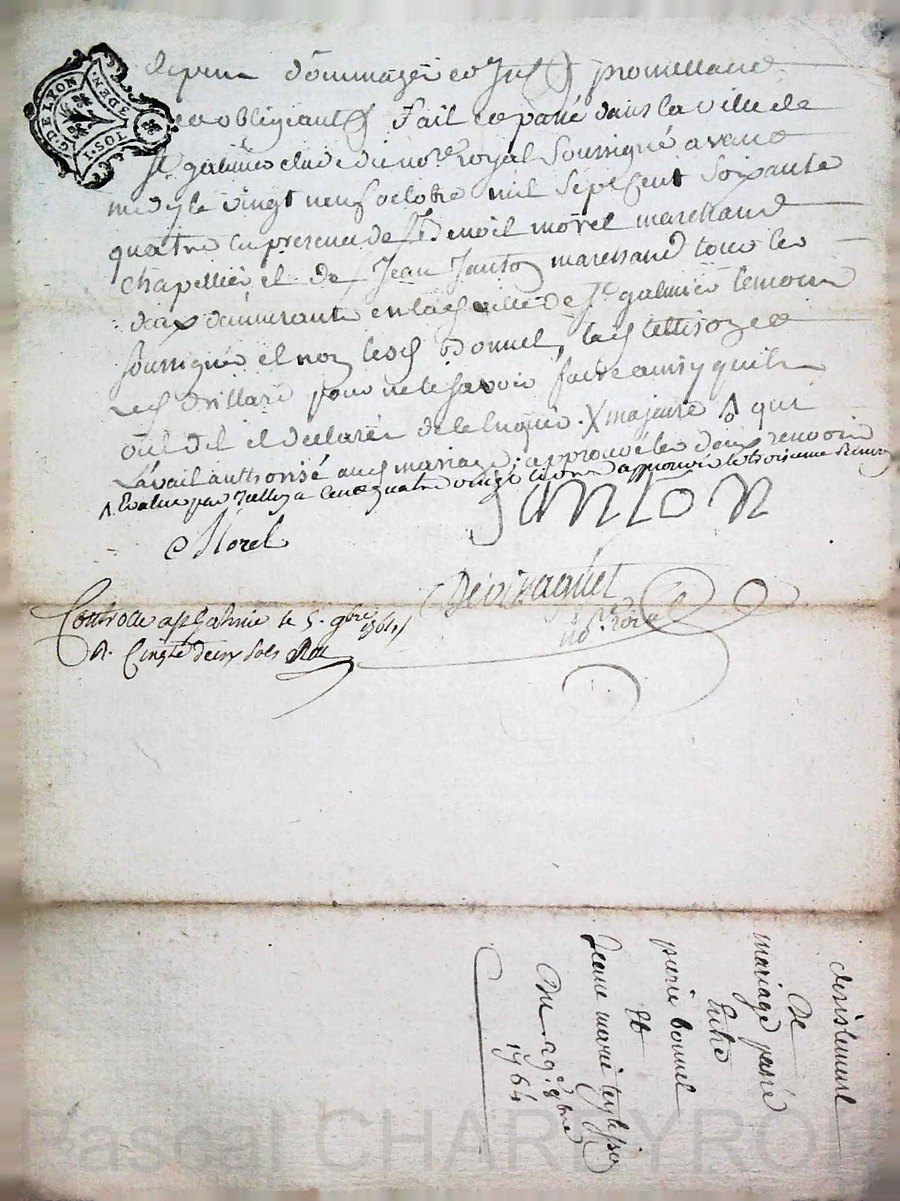 G. DE LYON
1. SOL 3 DEN.
de peine dommages et promettant
et obligeant Fait et passé dans la ville de
St galmier etude du no.re royal Soussigné avant
midy le vingt neuf octobre mil Sept Cent Soixante
quatre en presence de Sr Benoit morel marchand
chapellier et de Jean Janton marchand tous les
deux demeurants en lad ville de St galmier temoins
soussignés et non lesd Bonnel, lad
led Billard pour ne le scavoir faire ainsy quils
ont dit et declaré de ce enquis. X majeure qui
l'avait authorisé aud mariage; approuvé les deux renvois
Evalué par a Cent quatre vingt approuvé le troisieme Renvoy
JANTON
Morel
no.re royal
Controllé a St Galmier le 5. 9bre 1764
R. Cinq.te deux sols
desistement
De
mariage passé
Entre
pierre bonnel
Et
Jeanne marie
Du 29.e 8bre
1764
Pascal CHARBYRON